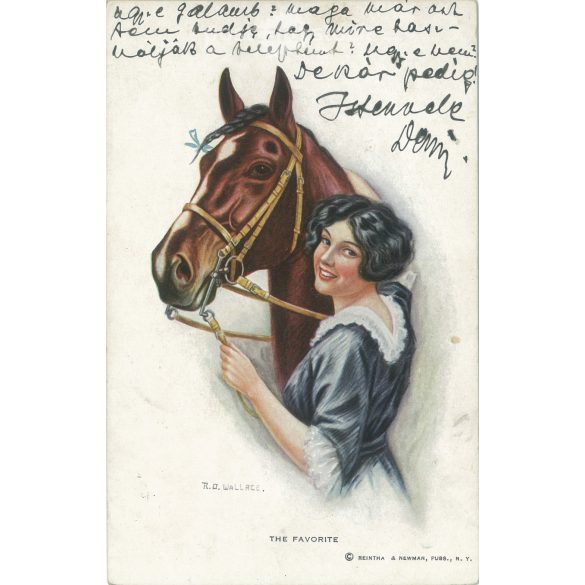 ugy-e galamb? maga már azt
sem tudja, hogy mire hasz-
nálják a telephont? ugy-e nem?
De kár pedig!
Istenvele
R.D. WALLACE.
THE FAVORITE
© REINTHA & NEWMAN, PUBS., N. Y.